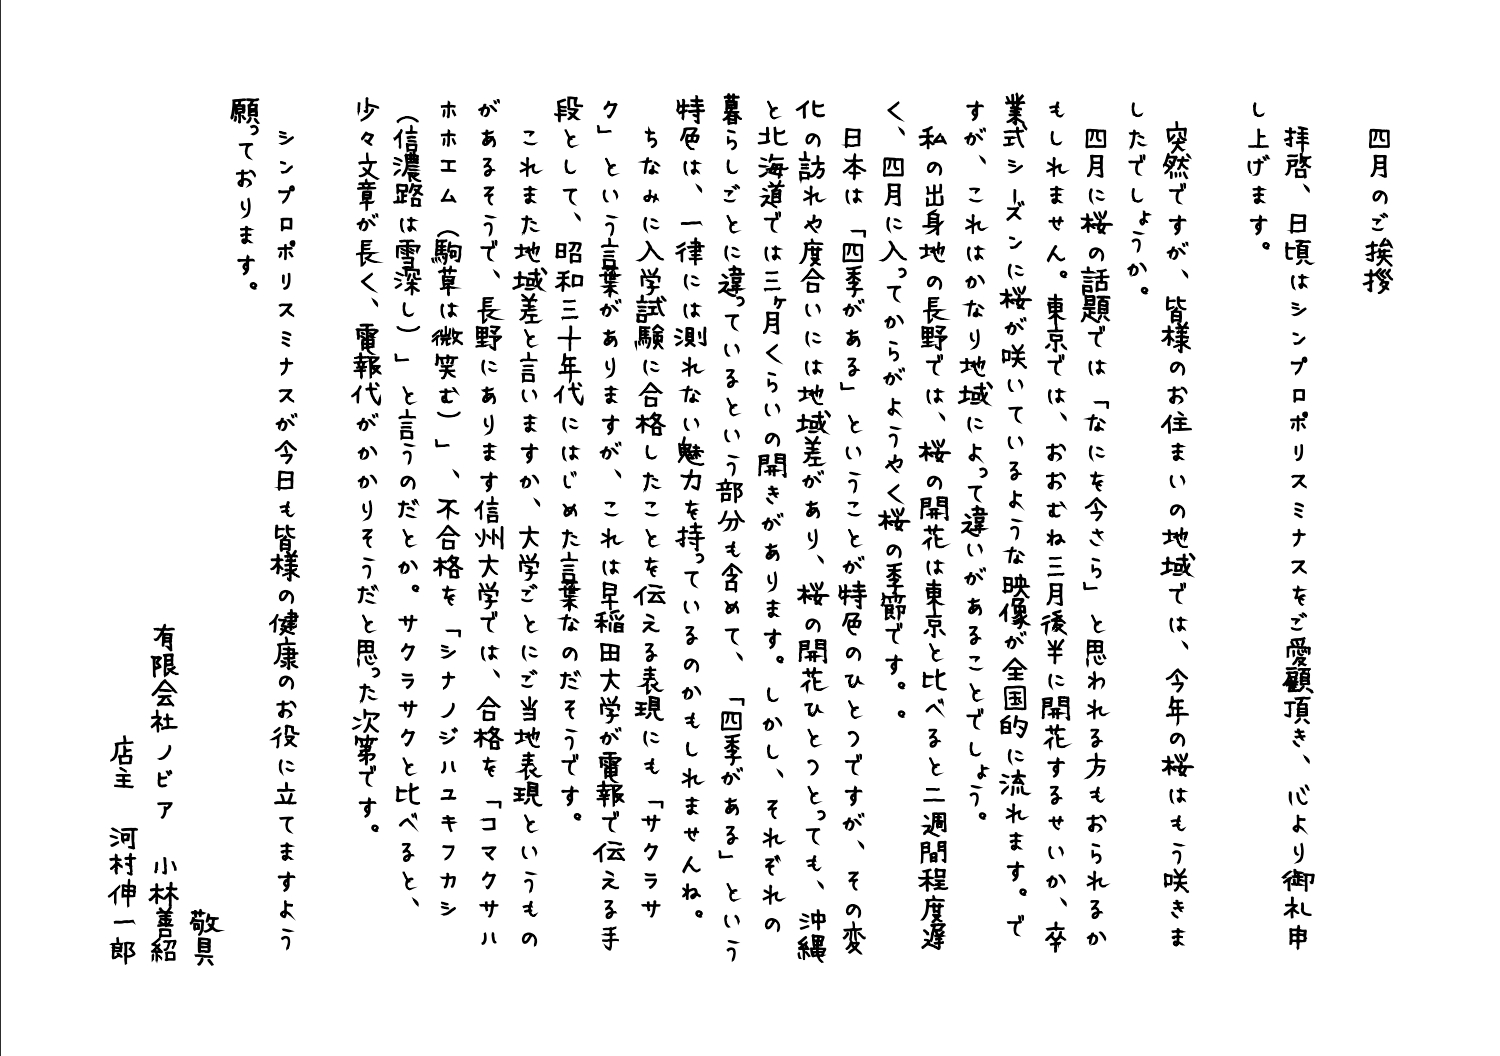 四月のご挨拶
拝啓、日頃はシンプロポリスミナスをご愛顧頂き、心より御礼申
し上げます。
突然ですが、皆様のお住まいの地域では、今年の桜はもう咲きま
したでしょうか。
四月に桜の話題では「なにを今さら」と思われる方もおられるか
もしれません。東京では、おおむね三月後半に開花するせいか、卒
業式シーズンに桜が咲いているような映像が全国的に流れます。で
すが、これはかなり地域によって違いがあることでしょう。
私の出身地の長野では、桜の開花は東京と比べると二週間程度遅
く、四月に入ってからがようやく桜の季節です。。
日本は「四季がある」ということが特色のひとつですが、その変
化の訪れや度合いには地域差があり、桜の開花ひとつとっても、沖縄
と北海道では三ヶ月くらいの開きがあります。しかし、それぞれの
暮らしごとに違っているという部分も含めて、「四季がある」という
特色は、一律には測れない魅力を持っているのかもしれませんね。
ちなみに入学試験に合格したことを伝える表現にも「サクラサ
ク」という言葉がありますが、これは早稲田大学が電報で伝える手
段として、昭和三十年代にはじめた言葉なのだそうです。
これまた地域差と言いますか、大学ごとにご当地表現というもの
があるそうで、長野にあります信州大学では、合格を「コマクサハ
ホホエム（駒草は微笑む）」、不合格を「シナノジハユキフカシ
（信濃路は雪深し）」と言うのだとか。サクラサクと比べると、
少々文章が長く、電報代がかかりそうだと思った次第です。
シンプロポリスミナスが今日も皆様の健康のお役に立てますよう
願っております。
敬具
有限会社ノビア　小林善紹
店主　河村伸一郎